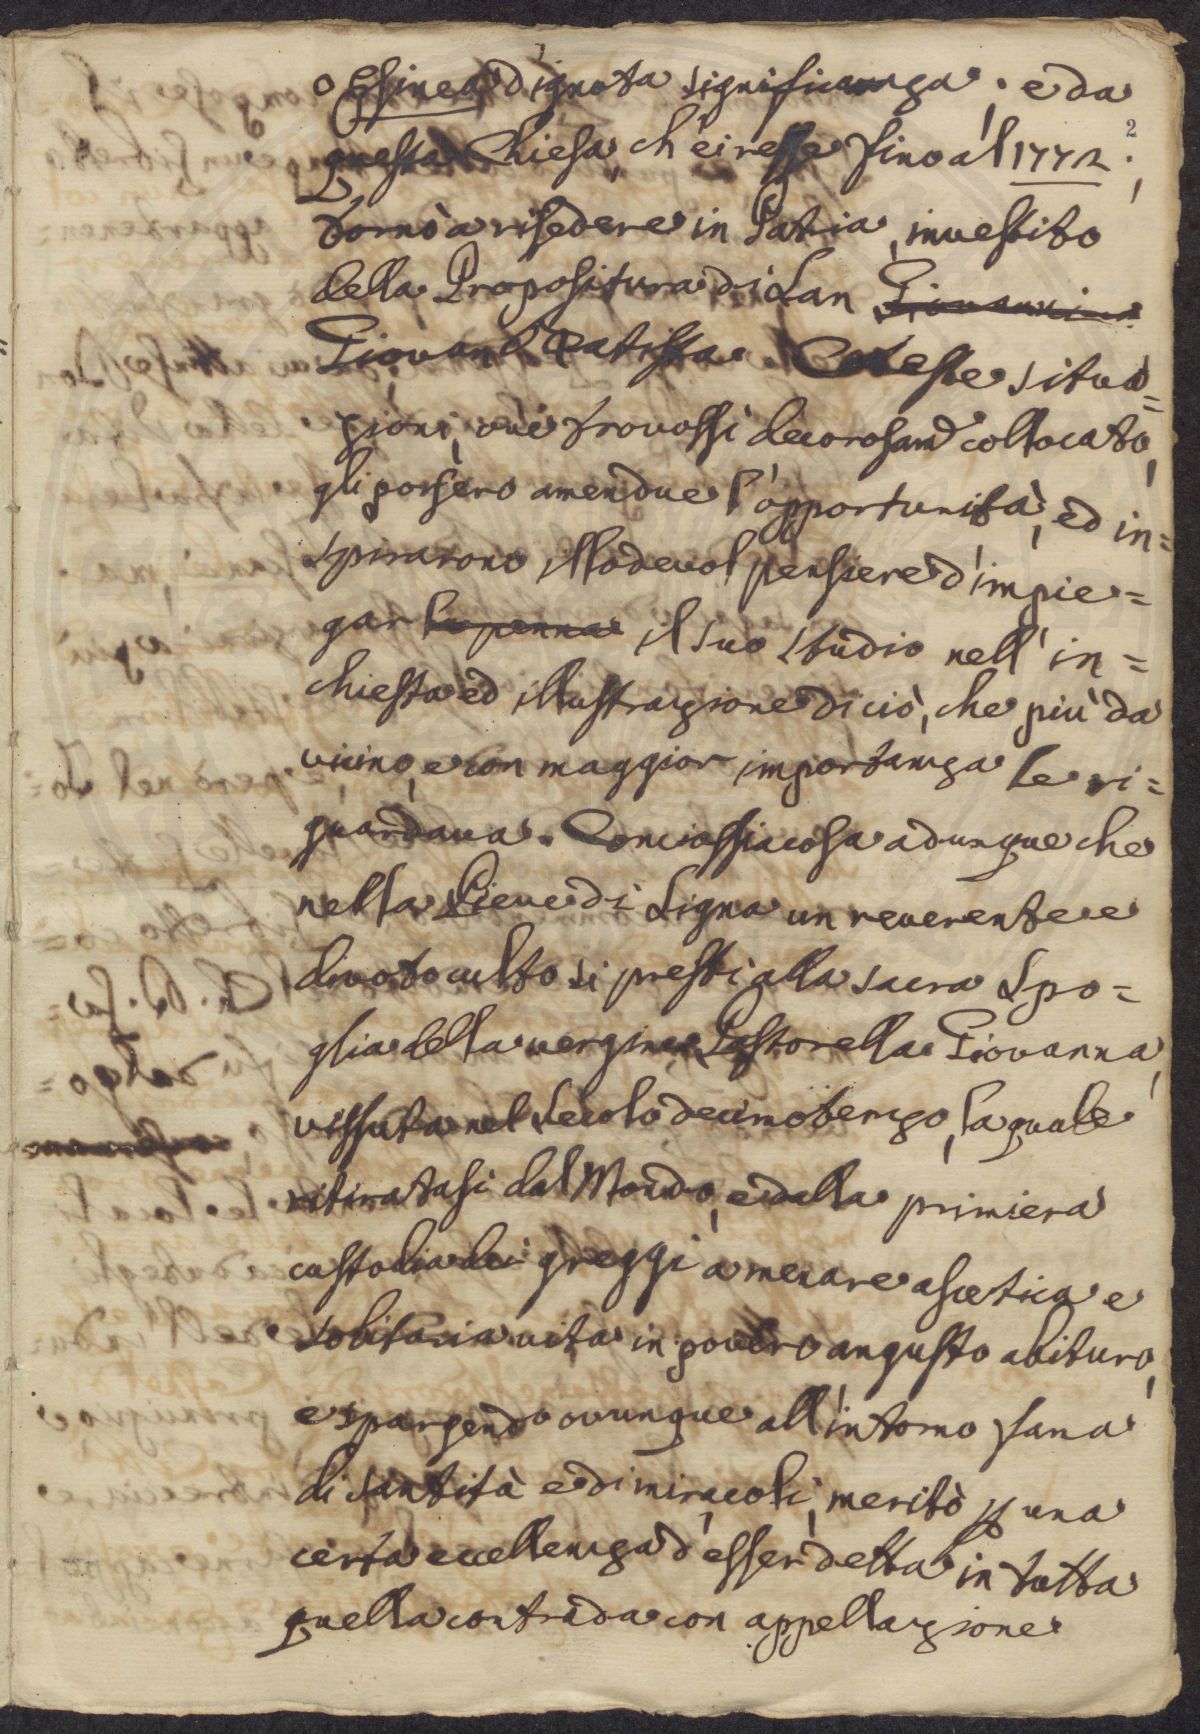 o Essinea, d'ignota significanza; e da
2
questa Chiesa, ch'ei resse fino al 1772.,
tornò a risedere in Patria, investito
della Propositura di San Giovanni
Giovan Batista. Coteste situa=
zioni, ove trovossi decorosam.e collocato,
gli porsero amendue l'opportunità, ed in=
spirarono il lodevol pensiere d'impie=
gar la penna il suo studio nell'in=
chiesta ed illustrazione di ciò, che più da
vicino, e con maggior importanza le ri=
guardava. Conciossiacosa adunque che
nella Pieve di Signa un reverente e
divoto culto si presti alla sacra Spo=
glia della vergine Pastorella Giovanna,
vissuta nel Secolo decimoterzo, la quale
ritiratasi dal Mondo, e dalla primiera
custodia dei greggi a menare ascetica e
solitaria vita in povero angusto abituro,
e spargendo ovunque all'intorno fama
di santità e di miracoli, meritò p una
certa eccellenza d'esser detta in tutta
quella contrada con appellazione